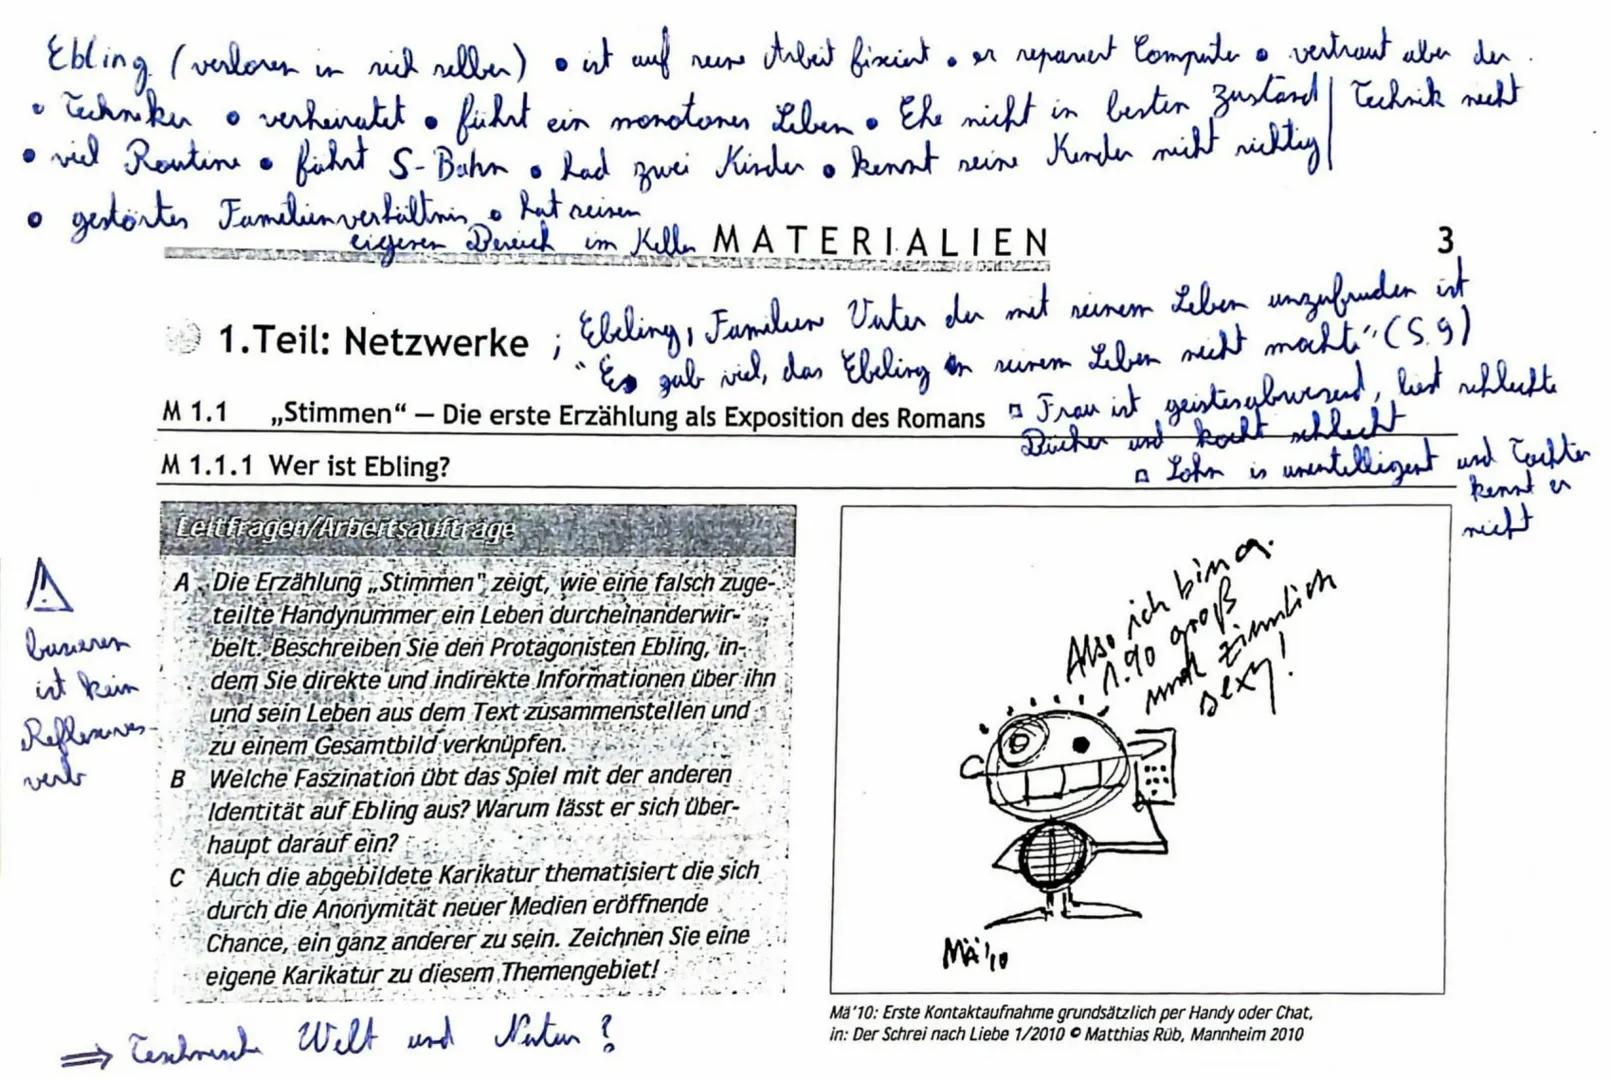 Ebling (verloren in sich selber) • ist auf seine Arbeit fixiert • er repariert Computer • vertraut aber der
• Techniker • verheiratet • führt ein monotones Leben • Ehe nicht in besten Zustand | Technik nicht
• viel Routine • fährt S-Bahn • had zwei Kinder • kennt seine Kinder nicht richtig |
• gestörtes Familienverhältnis • hat seinen
eigenen Bereich im Keller
MATERIALIEN
3
1.Teil: Netzwerke
; Ebeling, Familien Vater der mit seinem Leben unzufrieden ist
"Es gab viel, das Ebeling an seinem Leben nicht mochte" (S.9)
M 1.1 „Stimmen“ – Die erste Erzählung als Exposition des Romans
Frau ist geistesabwesend, liest schlechte
Bücher und kocht schlecht
M 1.1.1 Wer ist Ebling?
Sohn is unentelligent und Tochter
kennt er
nicht
Leitfragen/Arbeitsaufträge
A Die Erzählung „Stimmen“ zeigt, wie eine falsch zuge-
teilte Handynummer ein Leben durcheinanderwir-
belt. Beschreiben Sie den Protagonisten Ebling, in-
dem Sie direkte und indirekte Informationen über ihn
und sein Leben aus dem Text zusammenstellen und
zu einem Gesamtbild verknüpfen.
B Welche Faszination übt das Spiel mit der anderen
Identität auf Ebling aus? Warum lässt er sich über-
haupt darauf ein?
C Auch die abgebildete Karikatur thematisiert die sich
durch die Anonymität neuer Medien eröffnende
Chance, ein ganz anderer zu sein. Zeichnen Sie eine
eigene Karikatur zu diesem Themengebiet!
basieren
ist kein
Reflexives-
verb
Also ich bin ca.
1.90 groß
und ziemlich
sexy!
Mä'10
Mä'10: Erste Kontaktaufnahme grundsätzlich per Handy oder Chat,
in: Der Schrei nach Liebe 1/2010 © Matthias Rüb, Mannheim 2010
⇒ Technische Welt und Natur ?